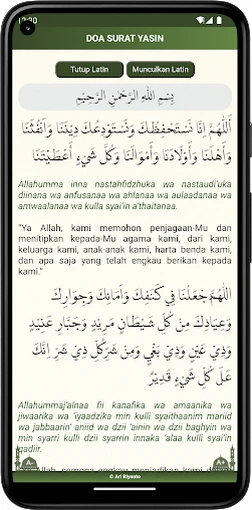 12:30
DOA SURAT YASIN
Tutup Latin
Munculkan Latin
بِسْمِ اللَّهِ الرَّحْمَٰنِ الرَّحِيْمِ
اَللّٰهُمَّ اِنَّا نَسْتَحْفِظُكَ وَنَسْتَوْدِعُكَ دِيْنَنَا وَاَنْفُسَنَا
وَاَهْلَنَا وَاَوْلَادَنَا وَاَمْوَالَنَا وَكُلَّ شَيْءٍ اَعْطَيْتَنَا
Allahumma inna nastahfidzhuka wa nastaudi'uka
diinana wa anfusanaa wa ahlanaa wa aulaadanaa wa
amwaalanaa wa kulla syai'in a'thaitanaa.
"Ya Allah, kami memohon penjagaan-Mu dan
menitipkan kepada-Mu agama kami, dari kami,
keluarga kami, anak-anak kami, harta benda kami,
dan apa saja yang telah engkau berikan kepada
kami."
اَللّٰهُمَّ اجْعَلْنَا فِيْ كَنَفِكَ وَاَمَانِكَ وَجِوَارِكَ
وَعِيَاذِكَ مِنْ كُلِّ شَيْطَانٍ مَرِيْدٍ وَجَبَّارٍ عَنِيْدٍ
وَذِيْ عَيْنٍ وَذِيْ بَغْيٍ وَمِنْ شَرِّ كُلِّ ذِيْ شَرٍّ اِنَّكَ
عَلَى كُلِّ شَيْءٍ قَدِيْرٌ
Allahummaj'alnaa fii kanafika wa amaanika wa
jiwaarika wa 'iyaadzika min kulli syaithaanim mariid
wa jabbaarin' aniid wa dzii 'ainin wa dzii baghyin wa
min syarri kulli dzii syarrin innaka 'alaa kulli syai'in
qadiir.
Allah, semoga engkau menjadikan kami d
© Ari Riyanto